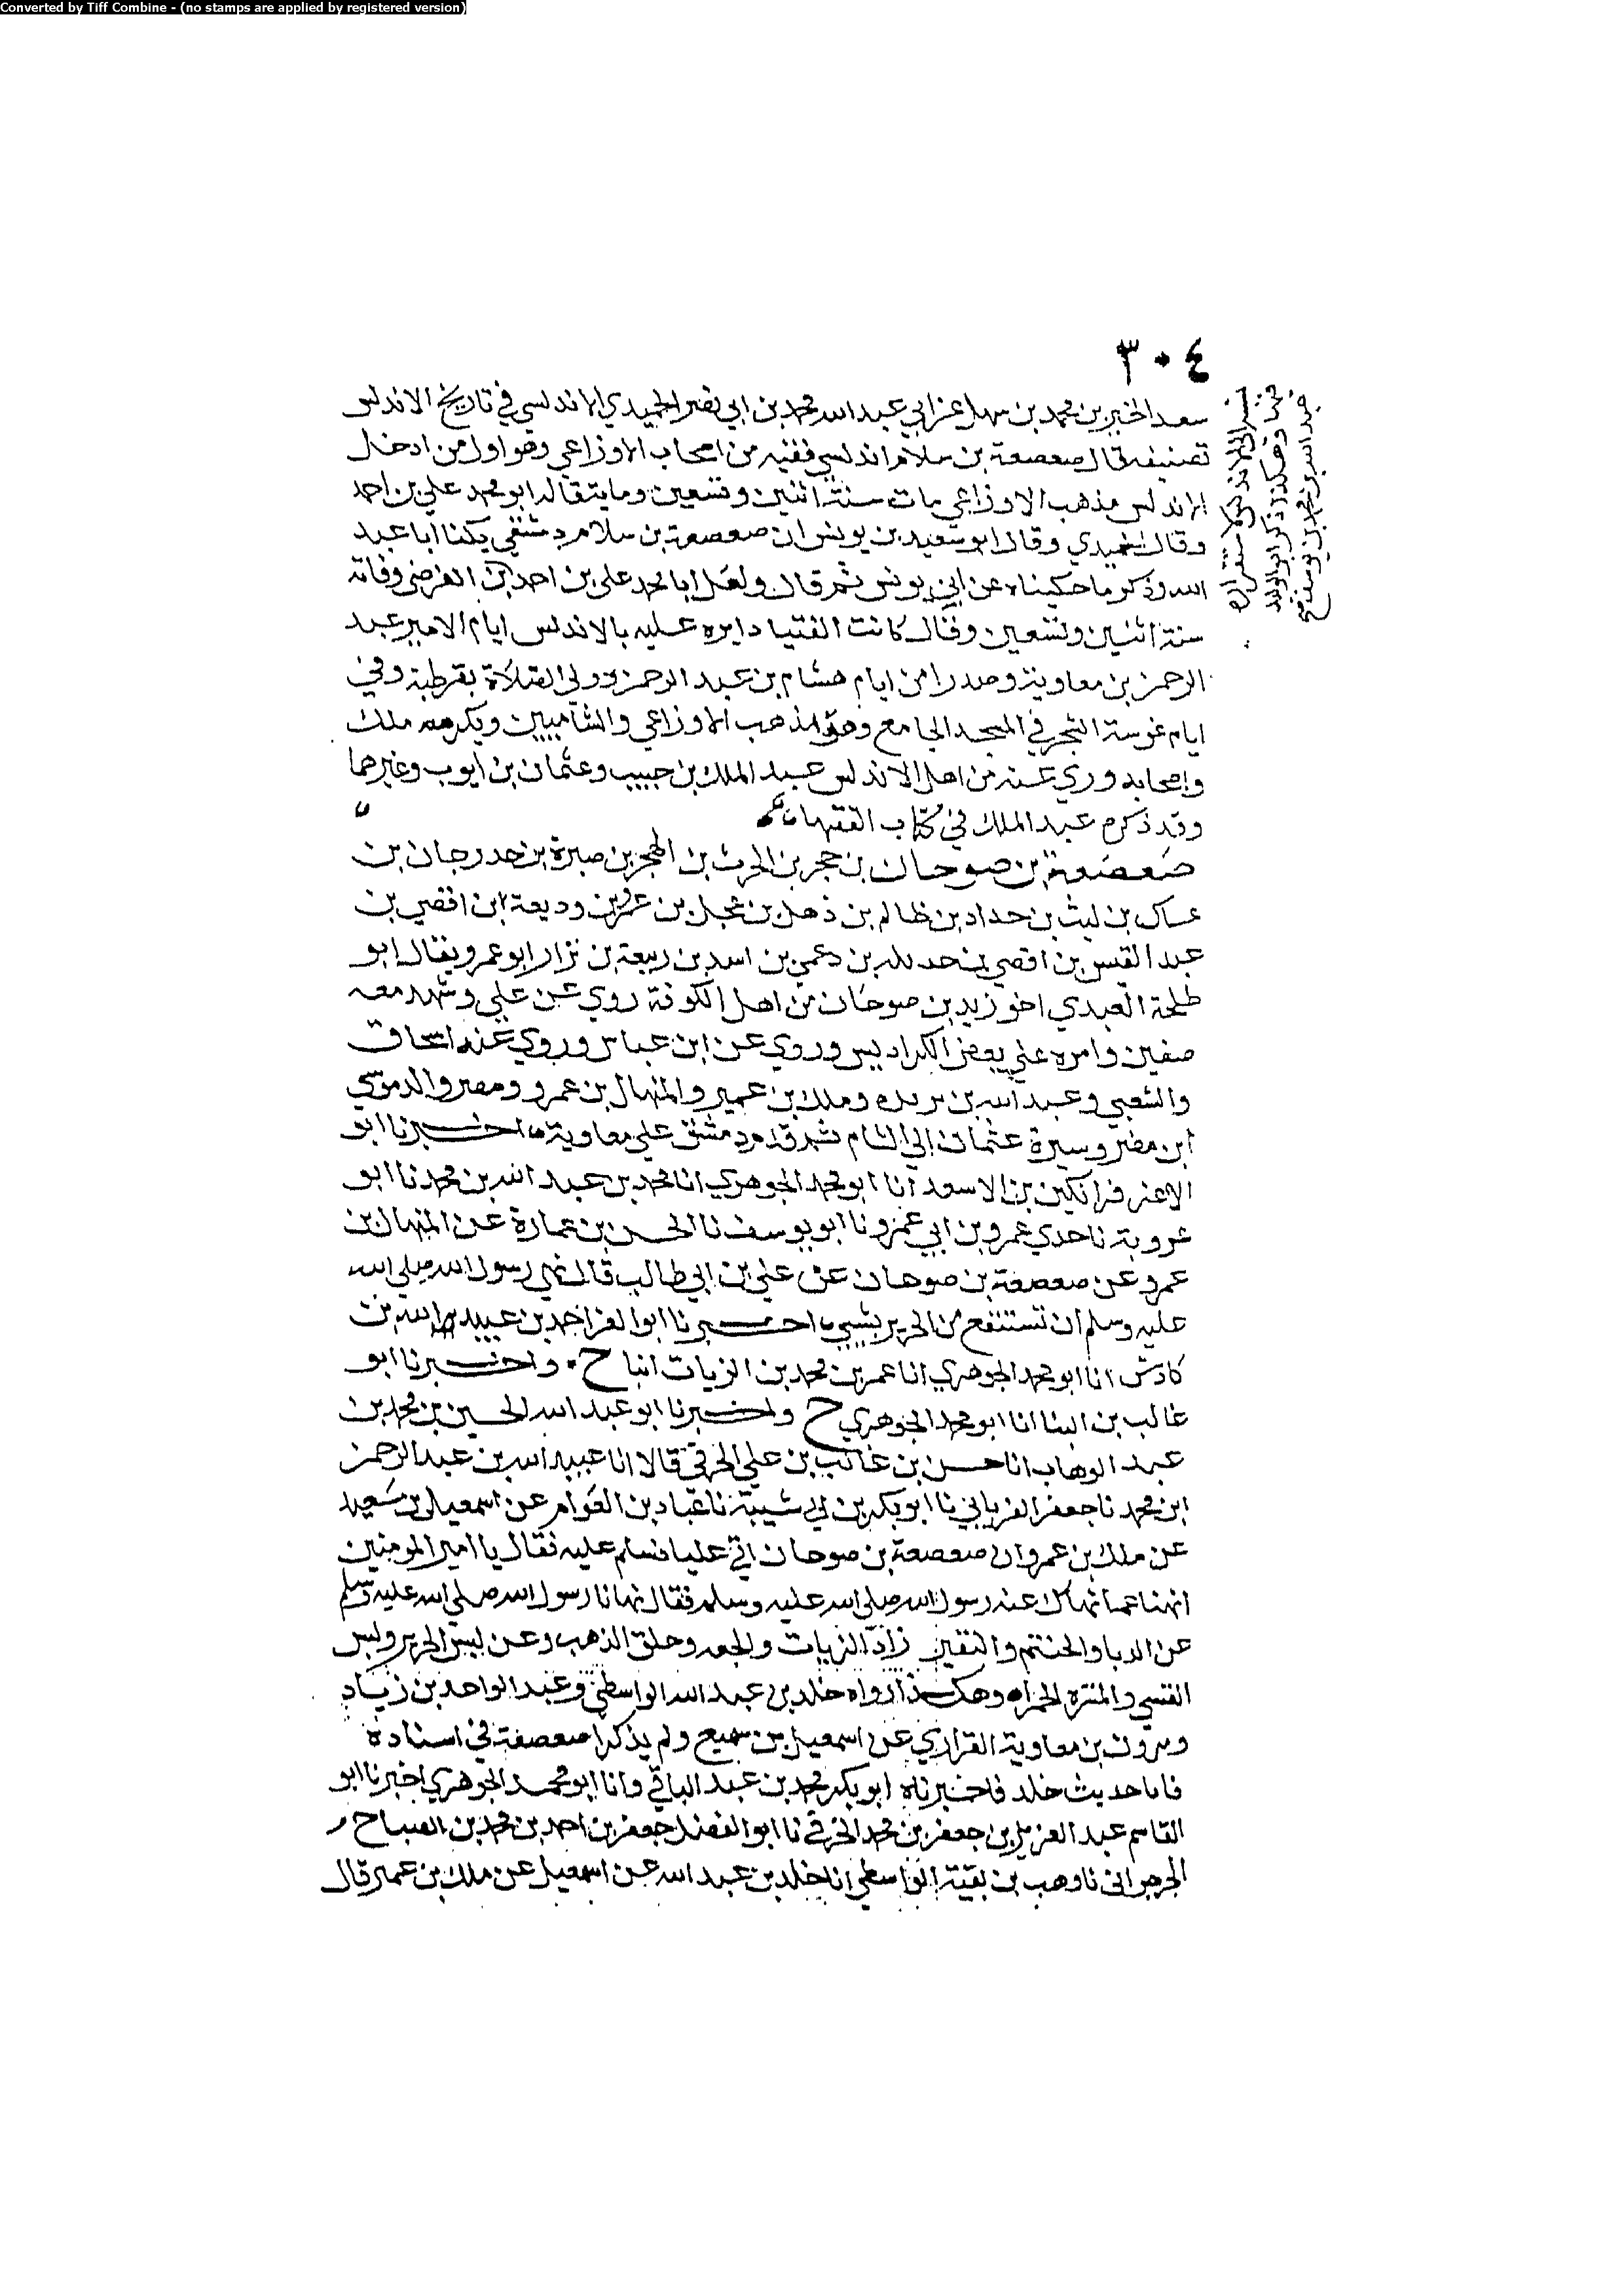 Converted by Tiff Combine - (no stamps are applied by registered version)
٣٠٤
سعد الخير بن محمد بن سهل عن ابي عبد الله محمد بن ابي نصر الحميدي الاندلسي في تاريخ الاندلس
تصنيفه قال صعصعة بن سلام اندلسي فقيه من اصحاب الاوزاعي وهو اول من ادخل
الاندلس مذهب الاوزاعي مات سنة اثنين وتسعين وماية قاله ابو محمد علي بن احمد
وقال الحميدي وقال ابو سعيد بن يونس ان صعصعة بن سلام دمشقي يكنا ابا عبد
الله وذكر ما حكيناه عن ابن يونس ثم قال ولعل ابا محمد علي بن احمد الفرضي وفاته
سنة اثنين وتسعين وقال كانت الفتيا دايره عليه بالاندلس ايام الامير عبد
الرحمن بن معاوية وصدرا من ايام هشام بن عبد الرحمن وولى الصلاة بقرطبة وفي
ايام غرست الشجر في المسجد الجامع وهو مذهب الاوزاعي والشاميين ويكرهه ملك
واصحابه وروي عنه من اهل الاندلس عبد الملك بن حبيب وعثمان بن ايوب وغيرهما
وقد ذكره عبد الملك في كتاب الفقهاء
صعصعة بن صوحان بن حجر بن الحرث بن الهجر بن صبرة بن حدرجان بن
عساك بن ليث بن حداد بن ظالم بن ذهل بن عجل بن عمرو بن وديعة ابن افصي بن
عبد القيس بن افصي بن دعمي بن اسد بن ربيعة بن نزار ابو عمرو يقال ابو
طلحة العبدي اخو زيد بن صوحان من اهل الكوفة روي عن علي وشهد معه
صفين وامره علي بعض الكراديس وروي عن ابن عباس وروي عنه اسحاق
والشعبي وعبد الله بن بريده وملك بن عمير والمنهال بن عمرو
وسيرة عثمان الي الشام ثم قدم دمشق علي معاوية اخبرنا ابو
الاعز قراتكين بن الاسعد انا ابو محمد الجوهري انا محمد بن عبد الله بن محمد نا ابو
عروبة نا جدي عمرو بن ابي عمرو نا ابو يوسف نا الحسن بن عمارة عن المنهال بن
عمرو عن صعصعة بن صوحان عن علي بن ابي طالب قال نهي رسول الله صلى الله
عليه وسلم ان نستنفع من الحرير بشيي اخبرنا ابو العز احمد بن عبيد الله بن
كادش انا ابو محمد الجوهري انا عمر بن محمد بن الزيات ح واخبرنا ابو
غالب بن البنا انا ابو محمد الجوهري ح واخبرنا ابو عبد الله الحسين بن محمد بن
عبد الوهاب انا حسن بن غالب بن علي الحرقي قالا انا عبيد الله بن عبد الرحمن
ابن محمد نا جعفر الفريابي نا ابو بكر بن ابي شيبة نا عباد بن العوام عن اسمعيل بن سعيد
عن ملك بن عمرو ان صعصعة بن صوحان اتى عليا فسلم عليه فقال يا امير المومنين
انهنا عما نهاك عنه رسول الله صلى الله عليه وسلم فقال نهانا رسول الله صلي الله عليه وسلم
عن الدبا والحنتم والنقير زاد الزيات والجعه وحلق الذهب وعن لبس الحرير ولبس
القسي والمثره الحمراء وهكذا رواه خلد بن عبد الله الواسطي وعبد الواحد بن زياد
ومروان بن معاوية الفزاري عن اسمعيل بن سميع ولم يذكرا صعصعة في اسناده
فاما حديث خلد فاخبرناه ابو بكر محمد بن عبد الباقي وانا ابو محمد الجوهري اخبرنا ابو
القاسم عبد العزيز بن جعفر بن محمد الخرقي نا ابو الفضل جعفر بن احمد بن محمد بن الصباح
الجرجراني نا وهب بن بقية الواسطي انا خلد بن عبد الله عن اسمعيل عن ملك بن عمير قال